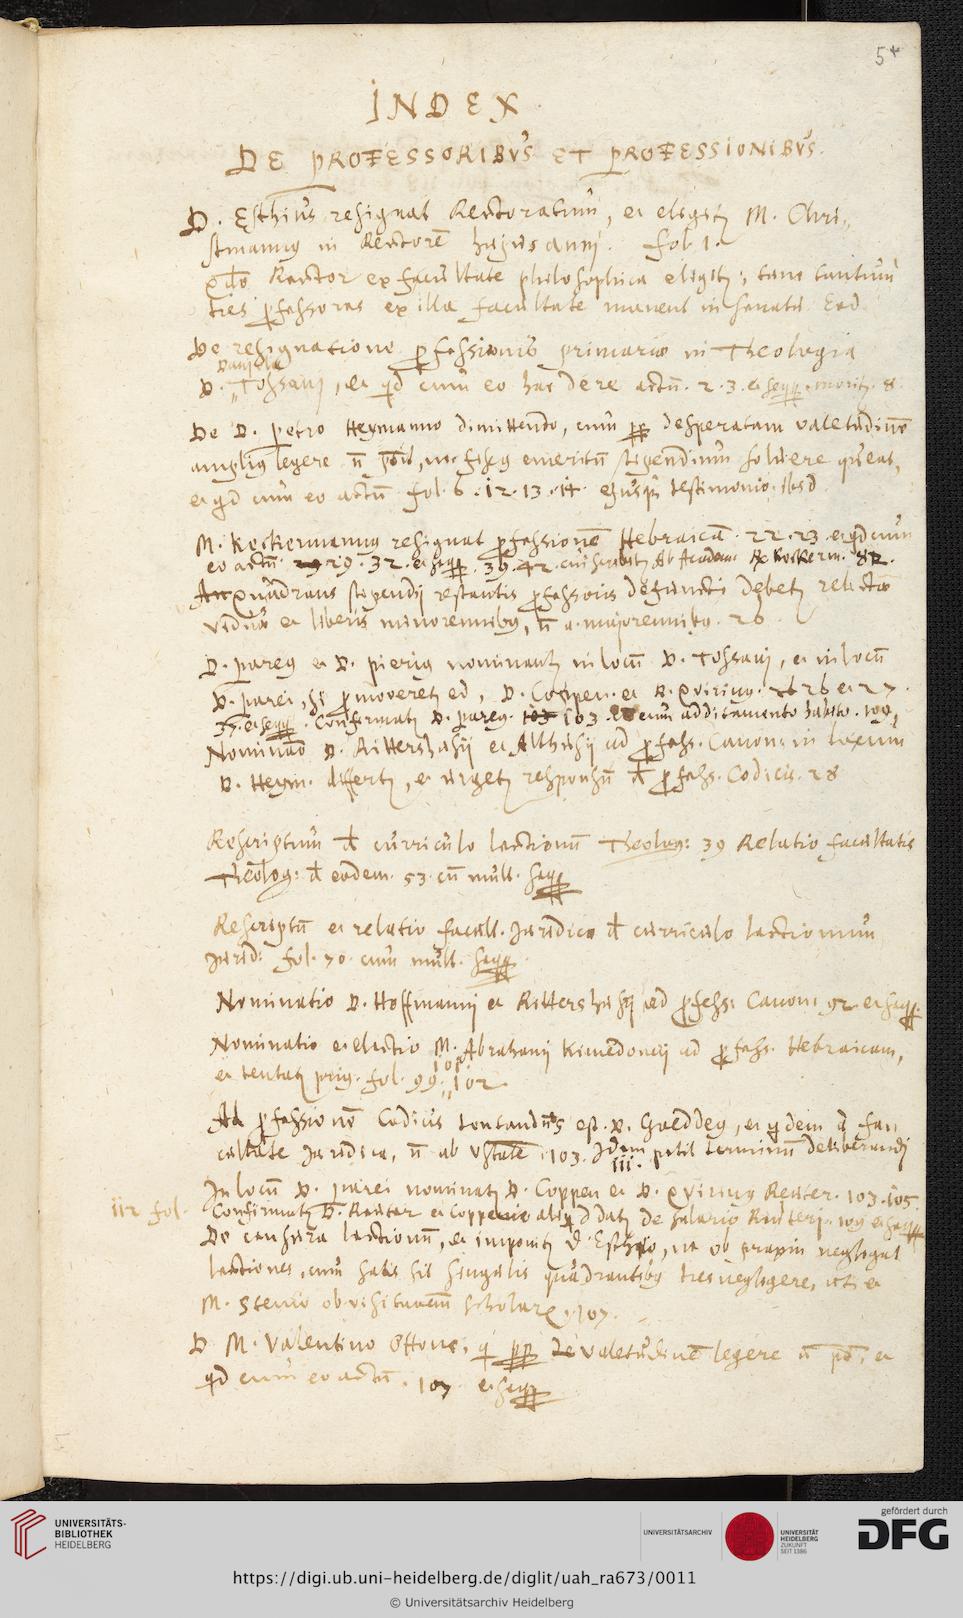 5*
INDEX
DE PROFESSORIBUS ET PROFESSIONIBUS.
D. Esthius resignat Rectoratum, et eligitur M. Chri-
stmannus in Rectorē hujus anni. fol. 1.
Rector ex facultate philosophica eligitur, tunc tantum
tres pfessores ex illa facultate manent in senatu. Eod.
De resignatione pfessionis primariae in Theologia
Danielis
D. Tossani, et qd cum eo hac de re actū. 2. 3. et seqq. moritur. 8.
De D. Petro Heymanno dimittendo, cum pp desperatam valetudinē
amplius legere nō , nec fiscus emeritū stipendium solvere queat,
et qd cum eo actū fol. 6. 12. 13. 14. ejusque testimonio. Ibid.
M. Keckermannus resignat pfessionē Hebraicā. 22. 23. et qd cum
eo actū 29. 32. et seqq. 39. 42. Ab Academ. Keckerm. 82.
An quadrans stipendij restantis pfessoris defuncti debetur relictae
viduae et liberis minorennibus, nō a. majorennibus. 26.
D. Pareus et D. Pierius nominantur in locū D. Tossani, et in locū
D. Parei, si pmoveretur ed, D. Coppen. et D. Quirinus. 26 et 27.
35. et seqq. Confirmatur D. Pareus. 103 cum additamento habito. 109,
Nominatio D. Rittershusij et Althusij ad pfess. Canon: in locum
D. Heym. differtur, et urgetur responsū de pfess. Codicis. 28
Rescriptum de curriculo lectionū Theolog: 39 Relatio facultatis
Theolog: de eodem. 53. cū mult. seqq
Rescriptū et relatio facult. Juridicae de curriculo lectionum
Jurid: fol. 70. cum mult. seqq
Nominatio D. Hoffmanni et Rittershusij ad pfess. Canon. 92. et seqq.
Nominatio et electio M. Abrahami Kimedoncij ad pfess. Hebraicam,
101
et tentatur prius. fol. 99. 102
Ad pfessionē Codicis tentandus est D. Gaeddeus, et qdem a fa-
cultate Juridica, nō ab Vstate. 103. Idem petit terminū deliberandi
111.
In locū D. Parei nominatur D. Coppen et D. Quirinus Reuter. 103. 105.
112 fol. Confirmatur D. Reuter et Coppenio datur de salario Reuteri. 109 et seqq
De censura lectionū, et imponitur D. Esthio, ne ob praxin neglegat
lectiones, cum satis sit singulis quadrantibus tres neglegere, uti et
M. Stenio ob visitationē scholarū. 107.
D M. Valentino Othone, q pp valetudinē legere nō , et
qd cum eo actū. 107 et seqq
UNIVERSITÄTS-
BIBLIOTHEK
HEIDELBERG
UNIVERSITÄTSARCHIV
UNIVERSITÄT
HEIDELBERG
ZUKUNFT
SEIT 1386
gefördert durch
DFG
https://digi.ub.uni-heidelberg.de/diglit/uah_ra673/0011
© Universitätsarchiv Heidelberg